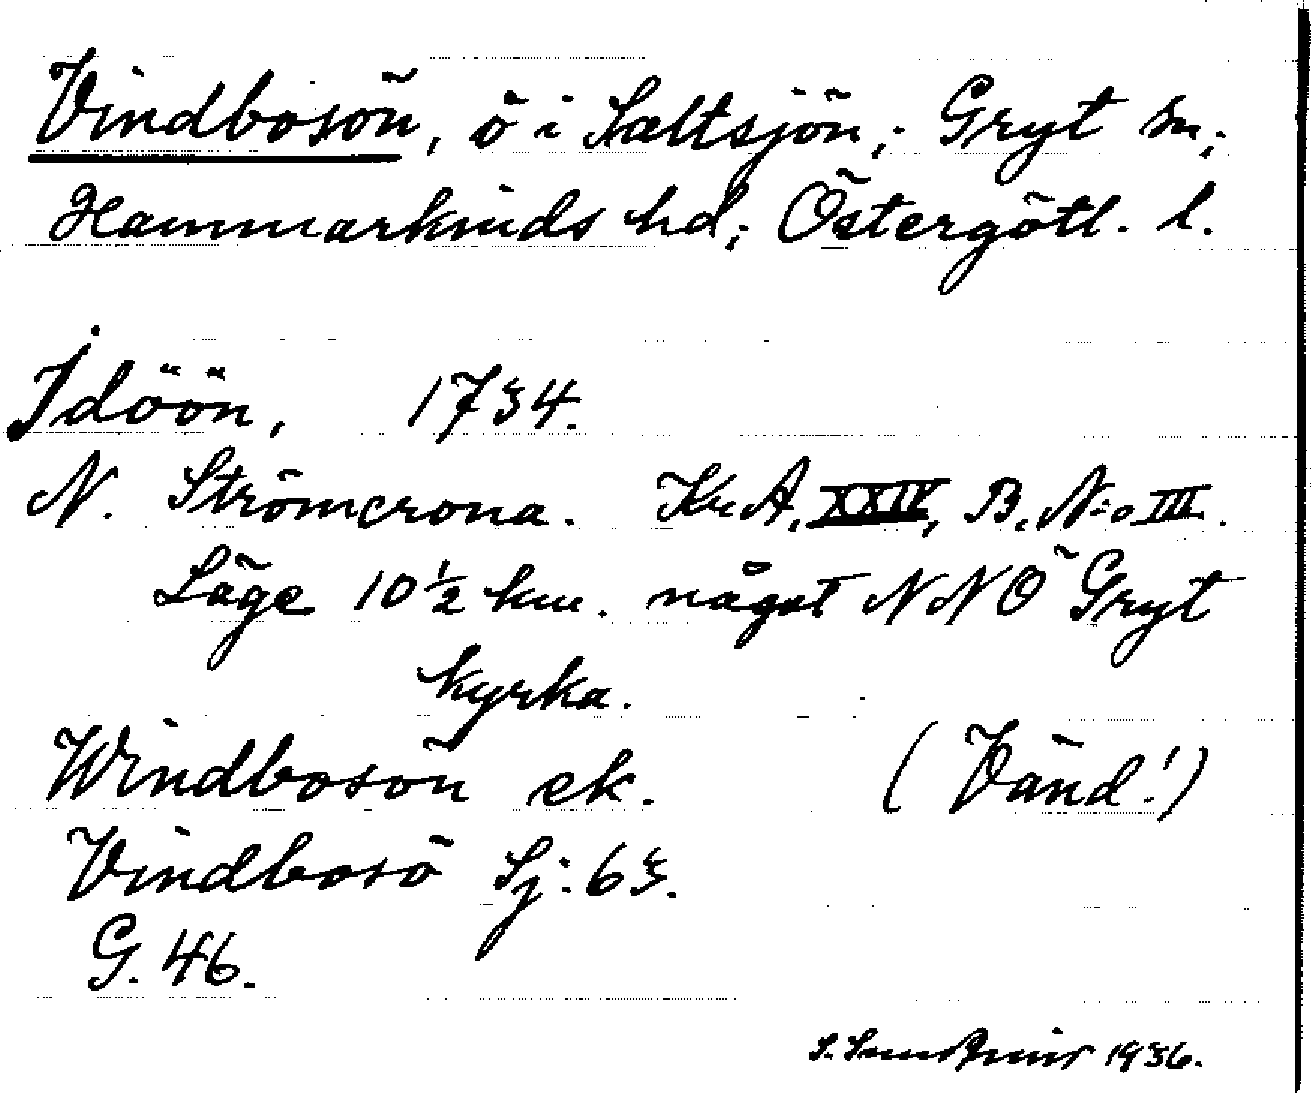 Vindbosön, ö i Saltsjön; Gryt sn;
Hammarkinds hd; Östergötl. l.
Idöön, 1734.
N. Strömcrona. Kr. A, XXIV, B. N:o III.
Läge 10 ½ km. något NNÖ Gryt
kyrka.
Windbosön ek. (Vänd!)
Vindbosö Sj: 63.
G. 46.
S. 1936.